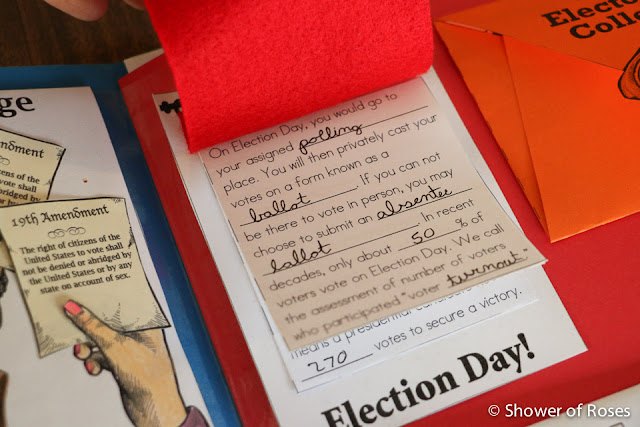 ge
Amendment
zens of the
o vote shall
abridged by
or by
19th Amendment
The right of citizens of the
United States to vote shall
not be denied or abridged by
the United States or by any
state on account of sex.
On Election Day, you would go to
your assigned polling
place. You will then privately cast your
votes on a form known as a
ballot. If you can not
be there to vote in person, you may
choose to submit an absentee
ballot. In recent
decades, only about 50 % of
voters vote on Election Day. We call
the assessment of number of voters
who participated "voter turnout."
means a presidential
270 votes to secure a victory.
Election Day!
Electo
Colle
© Shower of Roses